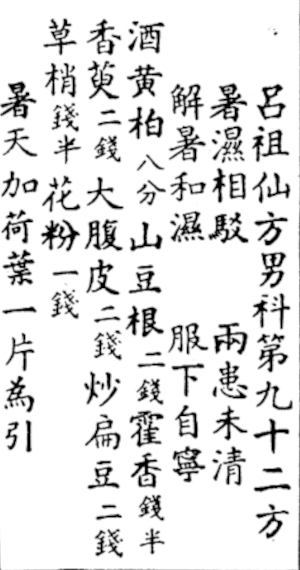 呂祖仙方男科第九十二方
暑濕相駁　兩患未清
解暑和濕　服下自寧
酒黄柏八分山豆根二錢霍香錢半
香萸二錢大腹皮二錢炒扁豆二錢
草梢錢半花粉一錢
暑天加荷葉一片為引